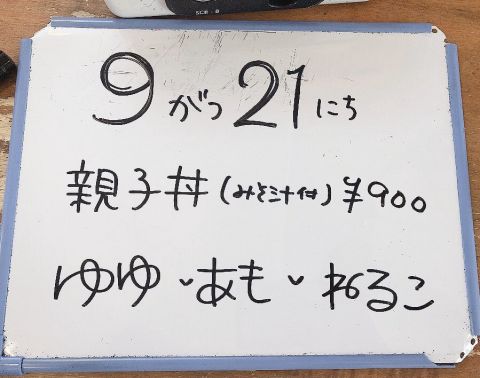 9がつ21にち
親子丼(みそ汁付)¥900
ゆゆ、あも、ねるこ